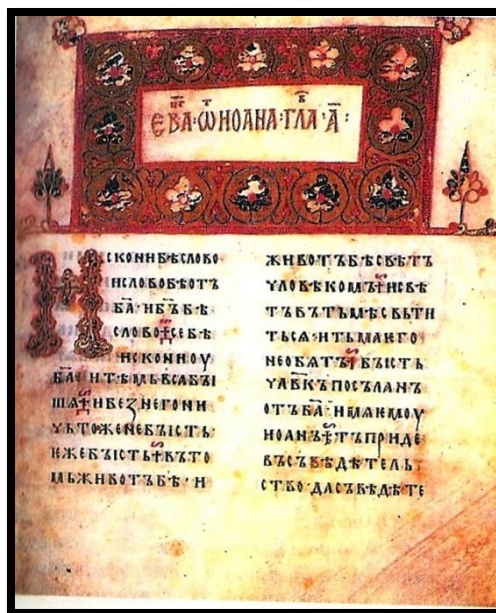 ЕВА·Ѿ ИОАНА·ГЛА·А҃:
ИСКОНИ БѢ СЛОВО
И СЛОВО БѢ ОТЪ
Б҃А· И Б҃Ъ БѢ
СЛОВО· СЕ БѢ
ИСКОНИ ОУ
Б҃А· И ТѢМЬ ВЬСА БЫ
ШѦ· И БЕЗ НЕГО НИ
ЧЬТОЖЕ НЕ БЫСТЬ·
ЕЖЕ БЫСТЬ· ВЪ ТО
МЬ ЖИВОТЪ БѢ· И
ЖИВОТЪ БѢ СВѢТЪ
ЧЛОВѢКОМЪ· И СВѢ
ТЪ ВЪ ТЬМѢ СВЬТИ
ТЬСѦ· И ТЬМА ѤГО
НЕ ОБѦТЪ· БЫСТЬ
ЧЛ҃ВКЪ ПОСЪЛАНЪ
ОТЪ Б҃А· ИМѦ ѤМОУ
ИОАНЪ· ТЪ ПРИДЕ
ВЪ СЪВѢДѢТЕЛЬ
СТВО· ДА СЪВѢДѢТЕ